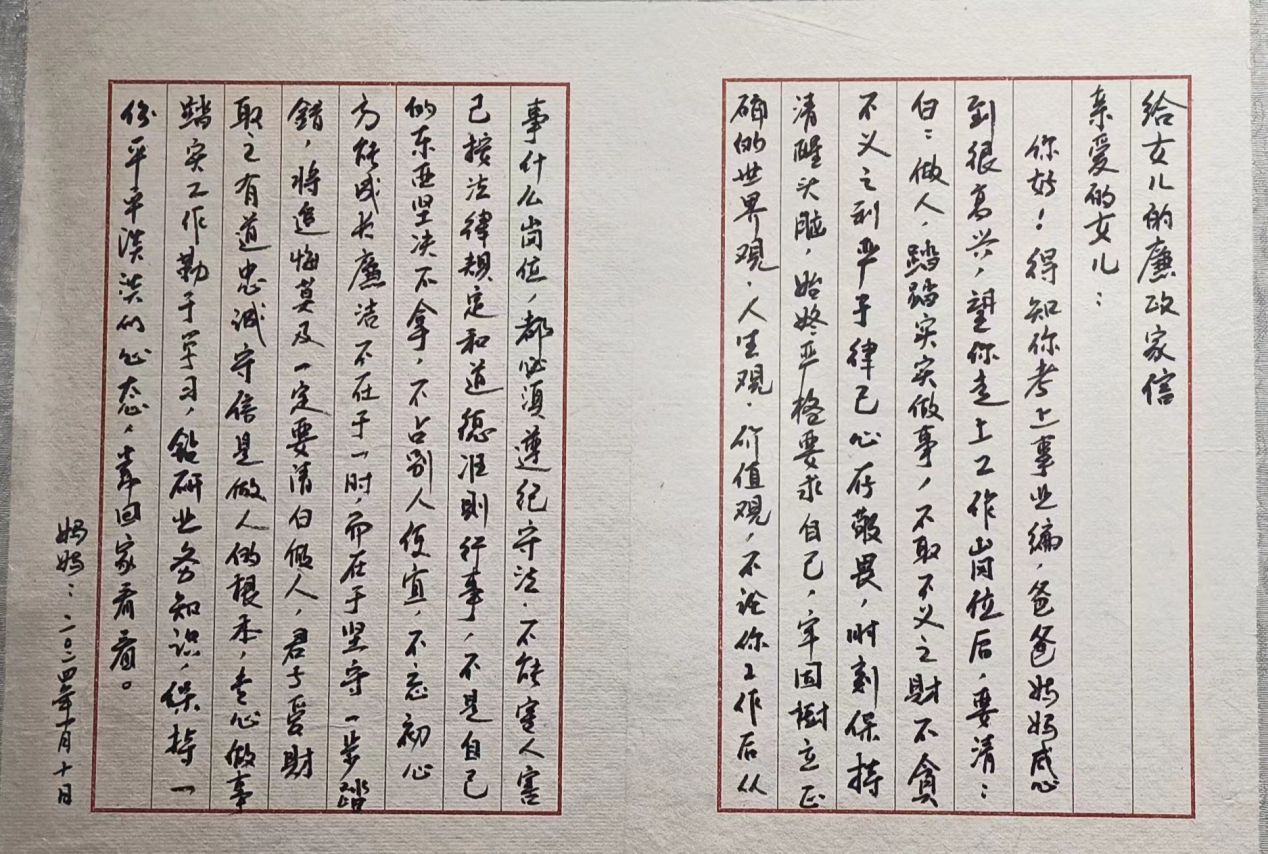 给女儿的廉政家信
亲爱的女儿：
你好！得知你考上事业编，爸爸妈妈感
到很高兴，望你走上工作岗位后，要清：
白：做人，踏踏实实做事，不取不义之财不贪
不义之利严于律己心存敬畏，时刻保持
清醒头脑，始终严格要求自己，牢固树立正
确的世界观·人生观·价值观，不论你工作后从
事什么岗位，都必须遵纪守法·不能害人害
己按法律规定和道德准则行事，不是自己
的东西坚决不拿，不占别人便宜，不忘初心
方能成长廉洁不在于一时，而在于坚守一步踏
错，将追悔莫及一定要清白做人，君子爱财
取之有道忠诚守信是做人的根本，专心做事
踏实工作勤于学习，钻研业务知识，保持一
份平平淡淡的心态，常回家看看。
妈妈：二〇二四年十一月十日